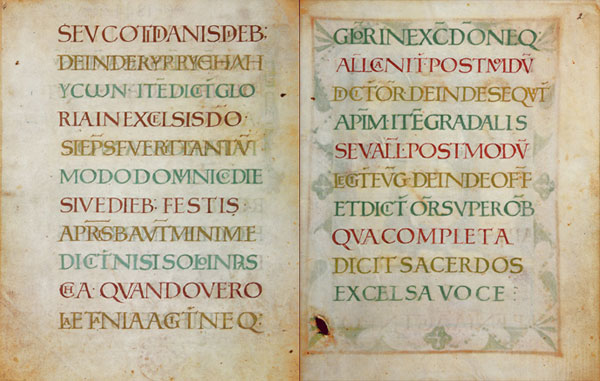 SEV COTIDANIS DIEB:
DEINDE
ITĒ DICIT̄ GLO
RIA IN EXCELSIS DO
SI EP̄S FVERIT TANTV̄
MODO DOMNICO DIE
SIVE DIEB: FESTIS
A PRS̄B AVT MINIME
DICIT̄ NISI SOLO IN PAS
CHA· QVANDO VERO
LETANIA AGIT̄ NEQ:
2
GLOR̄ IN EXC̄ DŌ NEQ:
ALL̄ CANIT̄ POSTMODV̄
DICIT̄ OR̄ DEINDE SEQVIT̄
APLM̄· ITĒ GRADALIS
SEV ALL̄· POSTMODV̄
LEGIT̄ EVG̅ DEINDE OFF̄
ET DICIT̄ OR̄ SVPER OB̄
QVA COMPLETA
DICIT SACERDOS
EXCELSA VOCE :